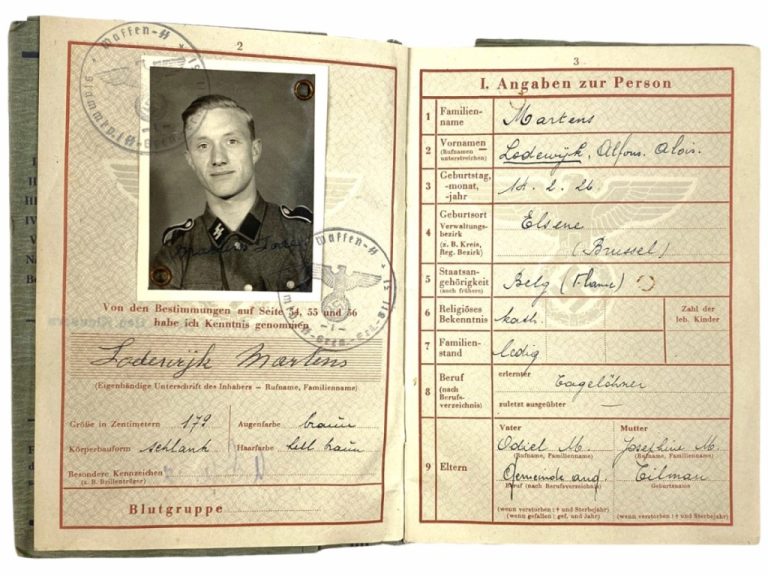 2
Waffen-SS
Waffen-SS
-1-
Von den Bestimmungen auf Seite 54, 55 und 56
habe ich Kenntnis genommen
Lodewijk Martens
(Eigenhändige Unterschrift des Inhabers — Rufname, Familienname)
Größe in Zentimetern 172 Augenfarbe braun
Körperbauform schlank Haarfarbe hell braun
Besondere Kennzeichen
(z. B. Brillenträger)
Blutgruppe
3
I. Angaben zur Person
1 Familien-name Martens
2 Vornamen (Rufnamen unterstreichen) Lodewijk, Alfons. Alois.
3 Geburtstag, -monat, -jahr 2. 26.
4 Geburtsort Verwaltungs-bezirk (z. B. Kreis, Reg. Bezirk) Elsene (Brussel)
5 Staatsan-gehörigkeit (auch frühere) Belg (Flame)
6 Religiöses Bekenntnis kath. Zahl der leb. Kinder
7 Familien-stand ledig
8 Beruf (nach Berufs-verzeichnis) erlernter Tagelöhner
zuletzt ausgeübter
9 Eltern
Vater Mutter
Odiel M. Josephine M.
(Rufname, Familienname) (Rufname, Familienname)
Gemeinde ang. Tilman
Beruf (nach Berufsverzeichnis) Geburtsname
(wenn verstorben: † und Sterbejahr) (wenn verstorben: † und Sterbejahr)
(wenn gefallen: gef. und Jahr)